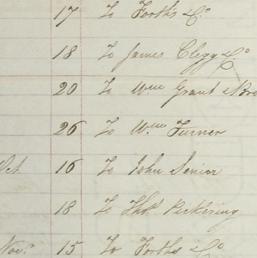 17 To Forth & Co
18 To James Clegg & Co
20 To Wm Grant & Bro
26 To Wm Turner
Oct. 16 To John Senior
18 To Thos Pickering
Nov. 15 To Forth & Co